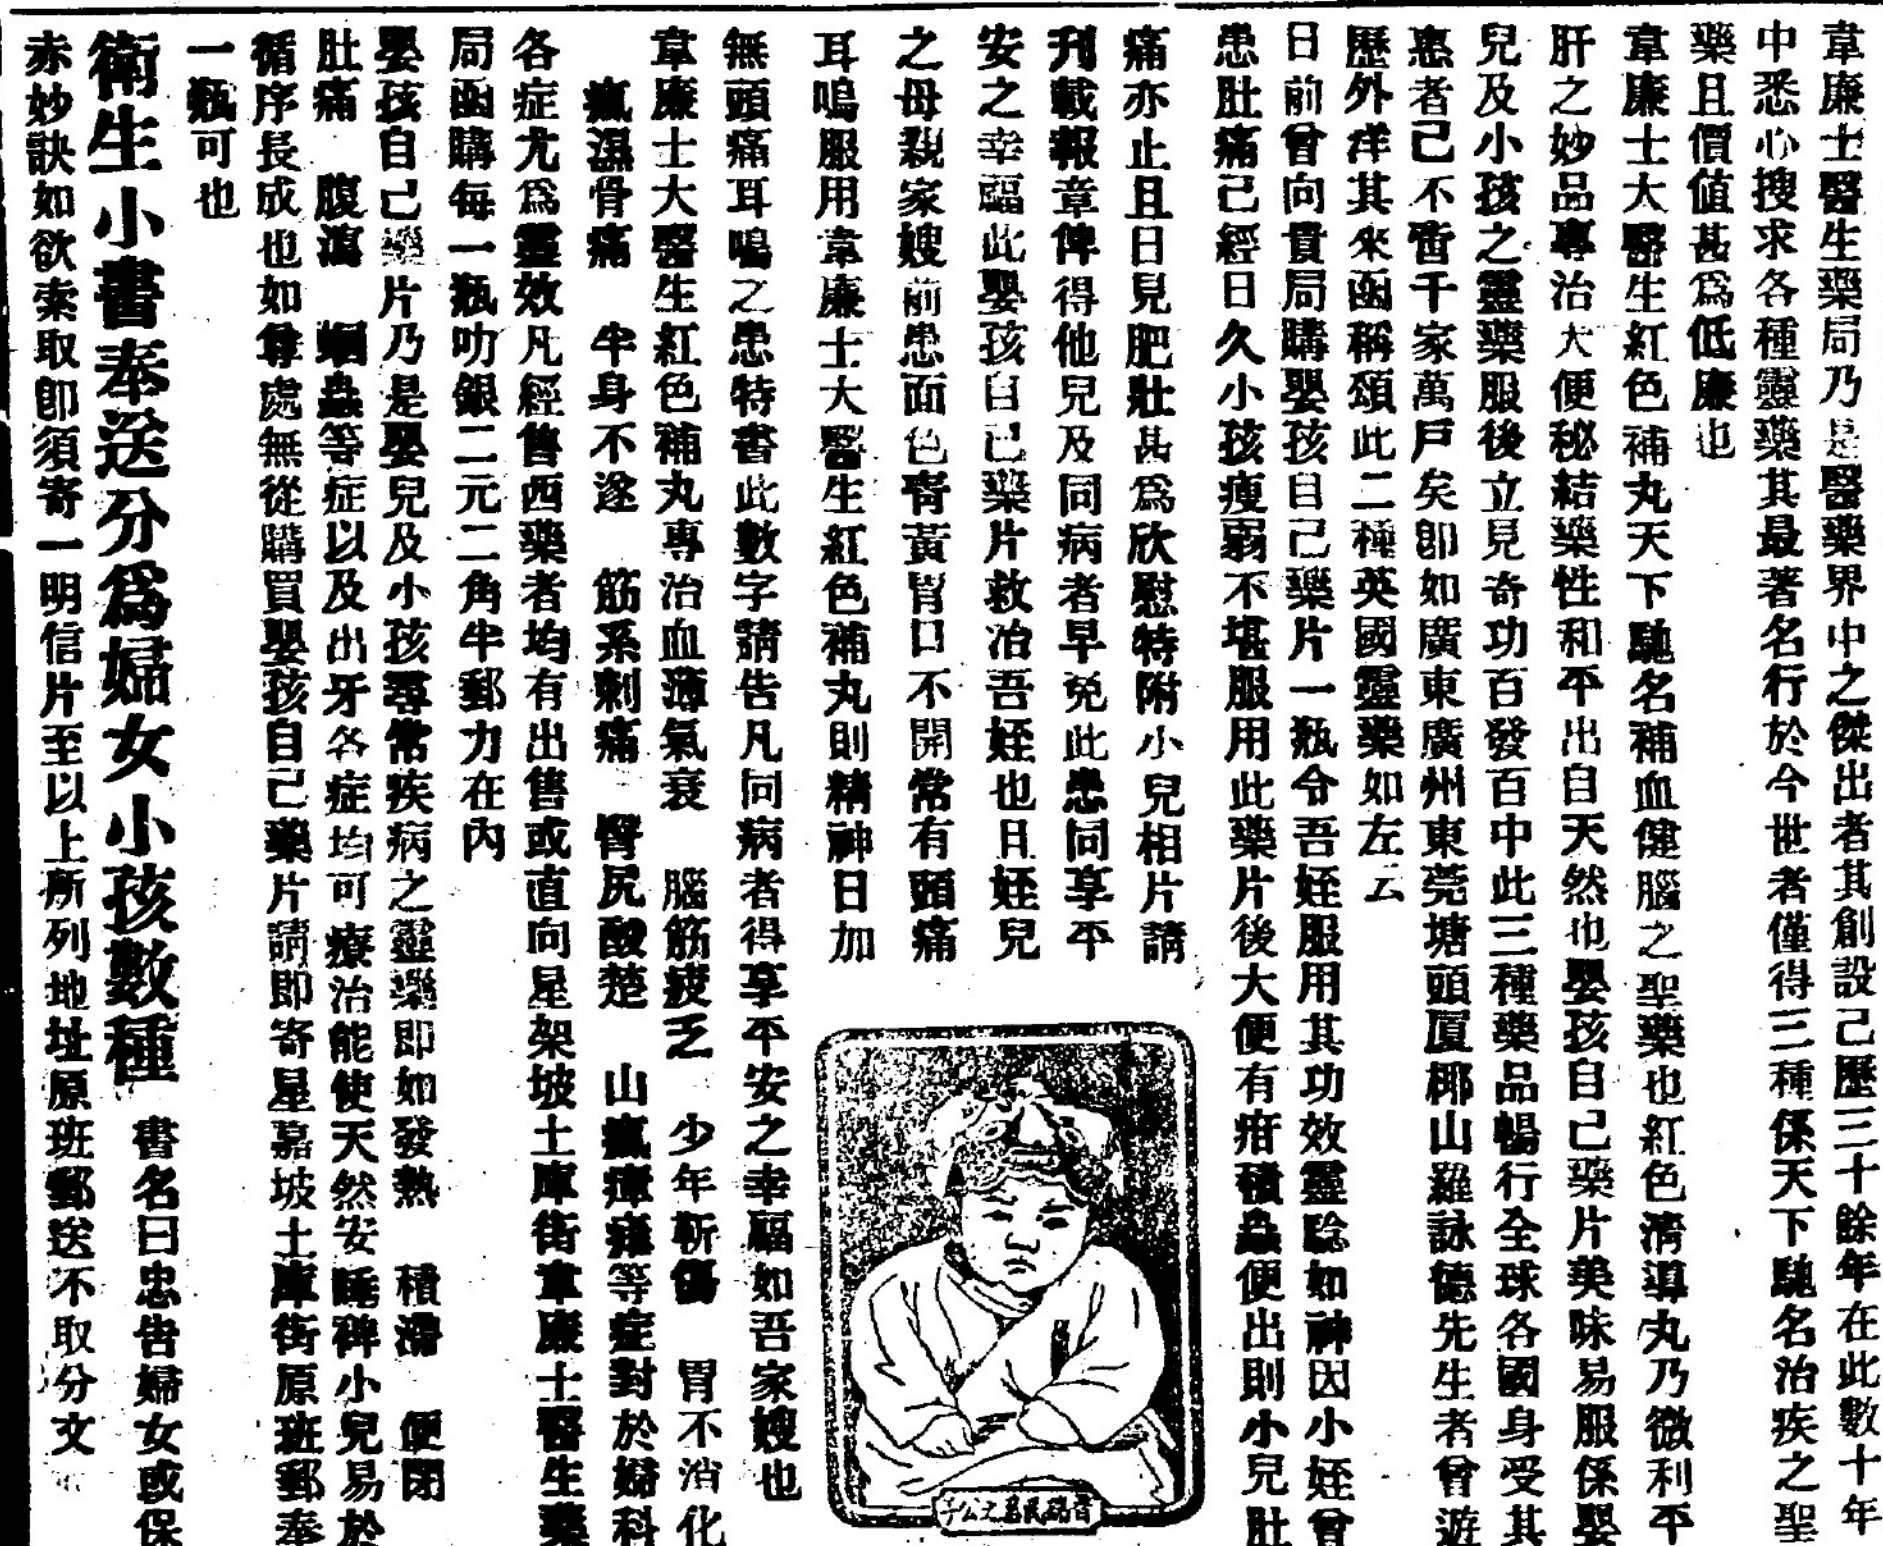 韋廉士醫生藥局乃是醫藥界中之傑出者其創設已歷三十餘年在此數十年
中悉心搜求各種靈藥其最著名行於今世者僅得三種係天下馳名治疾之聖
藥且價值甚爲低廉也
韋廉士大醫生紅色補丸天下馳名補血健腦之聖藥也紅色清導丸乃微利平
肝之妙品專治大便秘結藥性和平出自天然也嬰孩自己藥片美味易服係嬰
兒及小孩之靈藥服後立見奇功百發百中此三種藥品暢行全球各國身受其
惠者已不啻千家萬戶矣卽如廣東廣州東莞塘頭厦鄉山羅詠德先生者曾遊
歷外洋其來函稱頌此二種英國靈藥如左云
日前曾向貴局購嬰孩自己藥片一瓶令吾姪服用其功效靈騐如神因小姪曾
患肚痛已經日久小孩瘦弱不堪服用此藥片後大便有疳積蟲便出則小兒肚
痛亦止且日見肥壯甚爲欣慰特附小兒相片請
刋載報章俾得他兒及同病者早免此患同享平
安之幸福此嬰孩自己藥片救治吾姪也且姪兒
之母親家嫂前患面色靑黃胃口不開常有頭痛
耳鳴服用韋廉士大醫生紅色補丸則精神日加
無頭痛耳鳴之患特書此數字請告凡同病者得享平安之幸福如吾家嫂也
韋廉士大醫生紅色補丸專治血薄氣衰 腦筋疲乏 少年斲傷 胃不消化
瘋濕骨痛 半身不遂 筋系刺痛 臀尻酸楚 山瘋瘴瘧等症對於婦科
各症尤爲靈效凡經售西藥者均有出售或直向星架坡土庫街韋廉士醫生藥
局函購每一瓶叻銀二元二角半郵力在內
嬰孩自己藥片乃是嬰兒及小孩尋常疾病之靈藥卽如發熱 積滯 便閉
肚痛 腹瀉 蛔蟲等症以及出牙各症均可療治能使天然安睡裨小兒易於
循序長成也如尊處無從購買嬰孩自己藥片請卽寄星嘉坡土庫街原班郵奉
一瓶可也
衛生小書奉送分爲婦女小孩數種 書名曰忠告婦女或保
赤妙訣如欲索取卽須寄一明信片至以上所列地址原班郵送不取分文